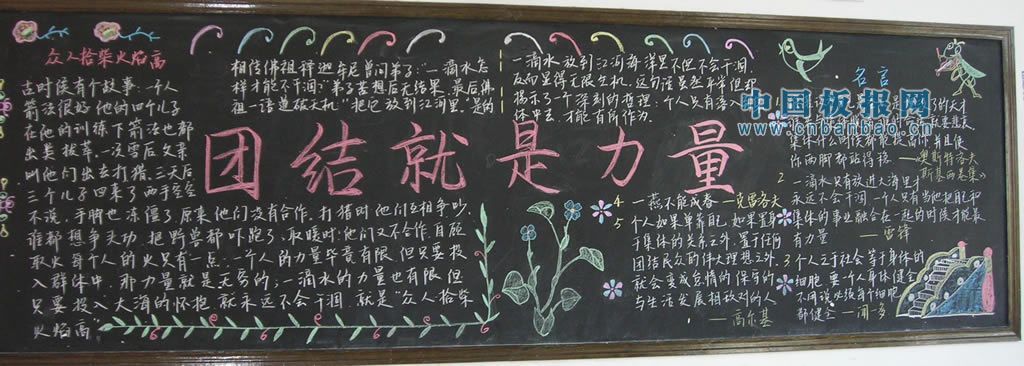 众人拾柴火焰高
古时候有个故事:一个人
箭法很好他的四个儿子
在他的训练下箭法也都
出类拔萃.一次雪后父亲
叫他们出去打猎.三天后
三个儿子回来了两手空空
不说,手脚也冻僵了原来他们没有合作,打猎时他们互相争吵
谁都想争头功,把野兽都吓跑了,取暖时,他们又不合作,自顾
取火每个人的火只有一点.一个人的力量毕竟有限但只要投
入群体中,那力量就是无穷的;一滴水的力量也有限,但
只要投入大海的怀抱就永远不会干涸就是"众人拾柴
火焰高"
相传佛祖释迦牟尼曾问弟子:"一滴水怎
样才能不干涸"弟子冥想后无结果.最后佛
祖一语道破天机"把它放到江河里."是的
一滴水放到江河海洋里不但不会干涸,
反而里得无限生机.这句话虽然平常但却
揭示了一个深刻的哲理:个人只有落入
体中去,才能有所作为.
团结就是力量
名言
中国板报网
www.cnbanbao.cn
集体什么时候都能提高你并且使
你两脚都站得稳.—奥斯特洛夫
斯基
2 一滴水只有放进大海里才
永远不会干涸一个人只有当他把自己和
集体的事业融合在一起的时候才能最
有力量 —雷锋
3 个人之于社会等于身体的
细胞要一个人身体健全
不用说必须每个细胞
都健全—闻一多
4 一燕不能成春—克雷洛夫
5 个人如果单靠自己如果置身
于集体的关系之外,置于任何
团结民众的伟大理想之外,
就会变成怠惰的保守的
与生活发展相敌对的人
—高尔基